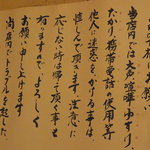 当店内では大声、喧嘩、ゆすり、
たかり、携帯電話の使用等
他人に迷惑をかける事は
慎しんで頂きます。注意に
応じない時は帰って頂く事も
有りますので、よろしく
お願い申し上げます
当店内でトラブルを起した